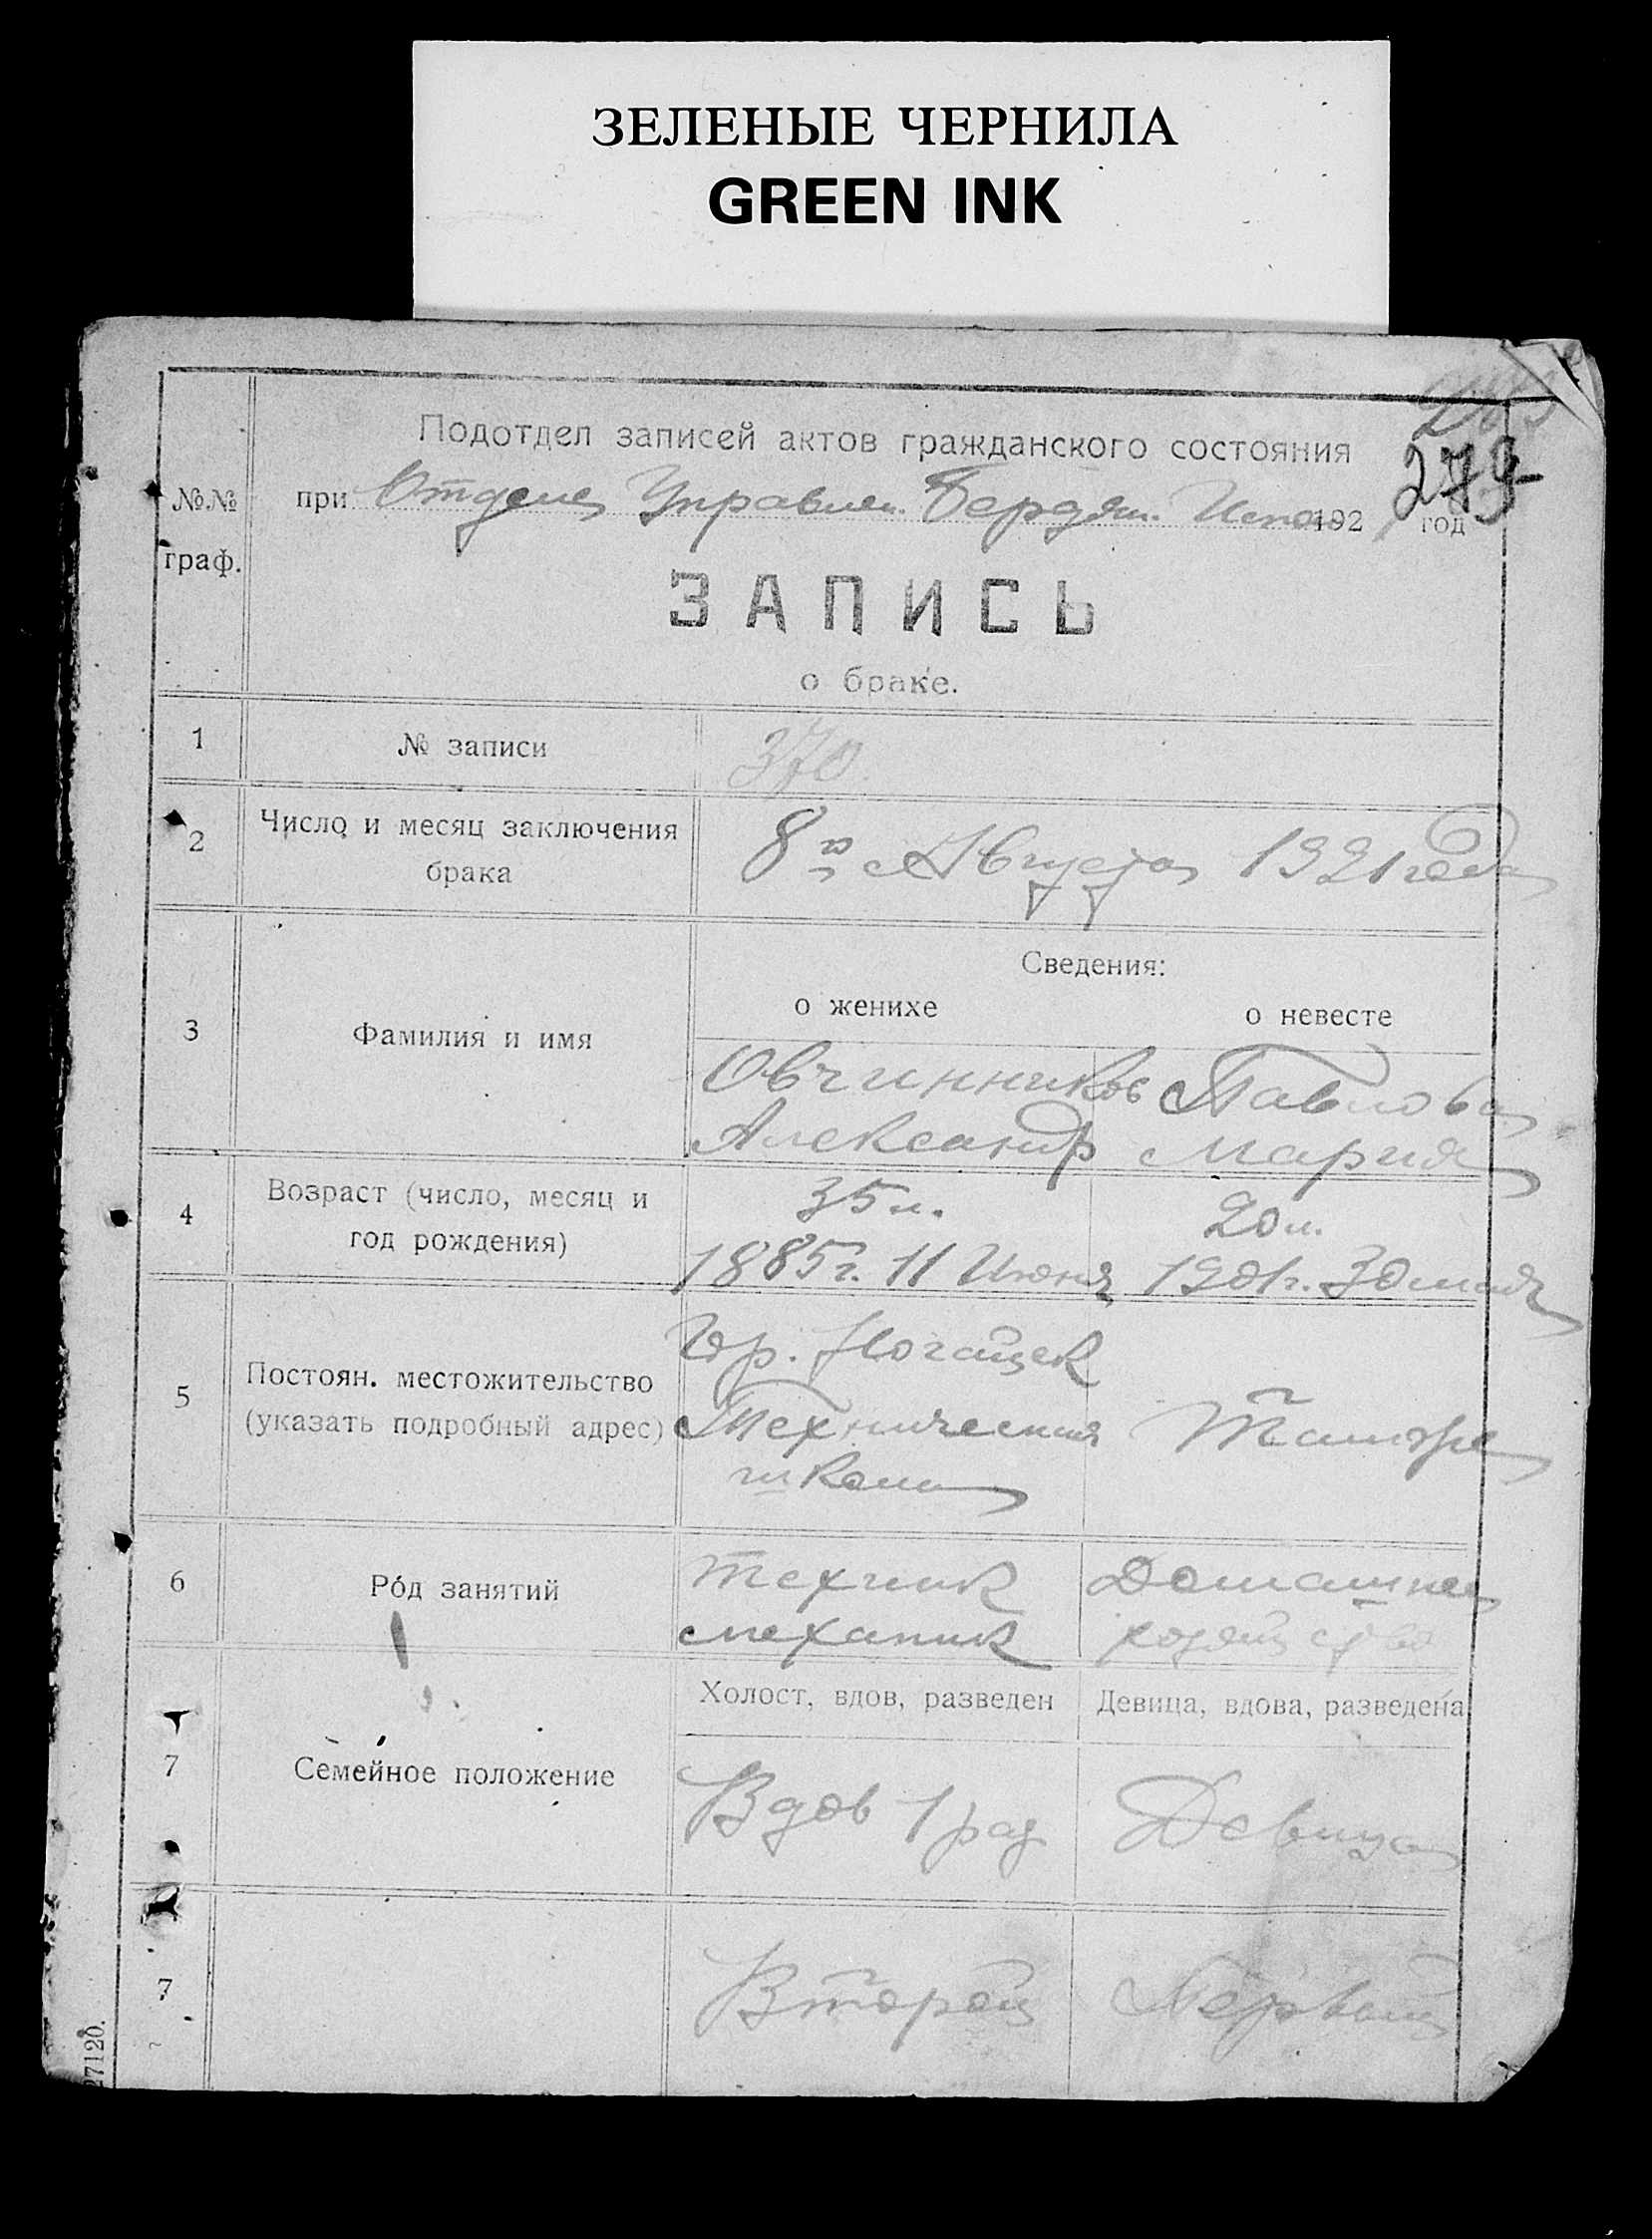 ЗЕЛЕНЫЕ ЧЕРНИЛА
GREEN INK
279
Подотдел записей актов гражданского состояния
№№ граф.
при Отделе Управлен. Бердян. 192 год
ЗАПИСЬ
о браке.
1 № записи 370.
2 Число и месяц заключения брака 8го Августа 1921 года
Сведения:
о женихе о невесте
3 Фамилия и имя
Овчинников Павлова
Александр Мария
4 Возраст (число, месяц и год рождения)
35 л. 20 л.
1885 г. 11 Июня 1901 г. 30 мая
5 Постоян. местожительство (указать подробный адрес)
Гор. Ногайск
Техническая Там же
школа
6 Род занятий
техник Домашнее
механик хозяйство
Холост, вдов, разведен Девица, вдова, разведена
7 Семейное положение
Вдов 1 раз Девица
7 Второй Первый
27120.